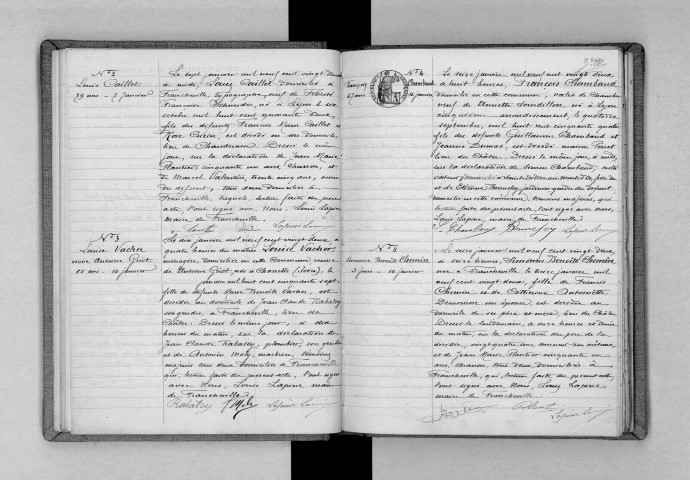 N° 2
Louis Caillot
79 ans - 7 Janvier
Le sept janvier mil neuf cent vingt deux
à midi, Louis Caillot domicilié à
Francheville, typographe, veuf de
Françoise né à Lyon le six
octobre mil huit cent quarante deux,
fils des défunts François Marie Caillot et
Rose est décédé en son domicile
lieu de Chaudanne. Dressé le même
jour, sur la déclaration de Jean Marie
Plantier, cinquante un ans, charron, et
de Marcel Valentin, trente cinq ans, neveu
du défunt, tous deux domiciliés à
Francheville, lesquels, lecture faite du présent
acte, l'ont signé avec Nous, Louis Lapine
maire de Francheville
Lapine
N° 3
Louise Vacher
veuve Antoine Griot
65 ans - 10 janvier
Le dix janvier mil neuf cent vingt deux à
quatre heures du matin Louise Vacher
ménagère, domiciliée en cette commune, veuve
de Antoine Griot, née à Charette (Isère), le
janvier mil huit cent cinquante sept
fille de Marie Benoîte Vacher, est
décédée au domicile de Jean Claude Rabatey
son gendre, à Francheville, lieu de
Châter. Dressé le même jour, à dix
heures du matin, sur la déclaration de
Jean Claude Rabatey, plombier, son gendre
et de Antonin Moly, marbrier, témoins
majeurs tous deux domiciliés à Francheville
qui, lecture faite du présent acte, l'ont signé
avec Nous, Louis Lapine maire
de Francheville
Rabatey Moly Lapine
N° 4
François Chambaud
67 ans 16 janvier
Le seize janvier mil neuf cent vingt deux,
à huit heures, François Chambaud
domicilié en cette commune, valet de chambre
veuf de Annette né à Lyon
cinquième arrondissement, le quatorze
septembre mil huit cent cinquante quatre
fils des défunts Guillaume Chambaud et
Jeanne Dumas, est décédé maison Perret
lieu du Châter. Dressé le même jour, à midi,
sur la déclaration de Chambaud,
domicilié à Saint Didier au Mont d'Or, fils du
et de Etienne jardinier gendre du défunt
domicilié en cette commune, témoins majeurs, qui
lecture faite du présent acte, l'ont signé avec Nous,
Louis Lapine, maire de Francheville
Chambaud Lapine
N° 5
Simonne Benoîte Chemin
3 jours - 16 janvier
Le seize janvier mil neuf cent vingt deux,
à seize heures, Simonne Benoîte Chemin
née à Francheville le treize janvier mil
neuf cent vingt deux, fille de Francis
Chemin et de Catherine Antoinette
son épouse, est décédée au
domicile de ses père et mère, lieu du Châter
Dressé le lendemain, à onze heures et demie
du matin, sur la déclaration du père de la
décédée, vingt quatre ans,
et de Jean Marie Plantier cinquante un
ans, charron, tous deux domiciliés à
Francheville, qui, lecture faite du présent acte,
l'ont signé avec Nous, Louis Lapine,
maire de Francheville
Lapine